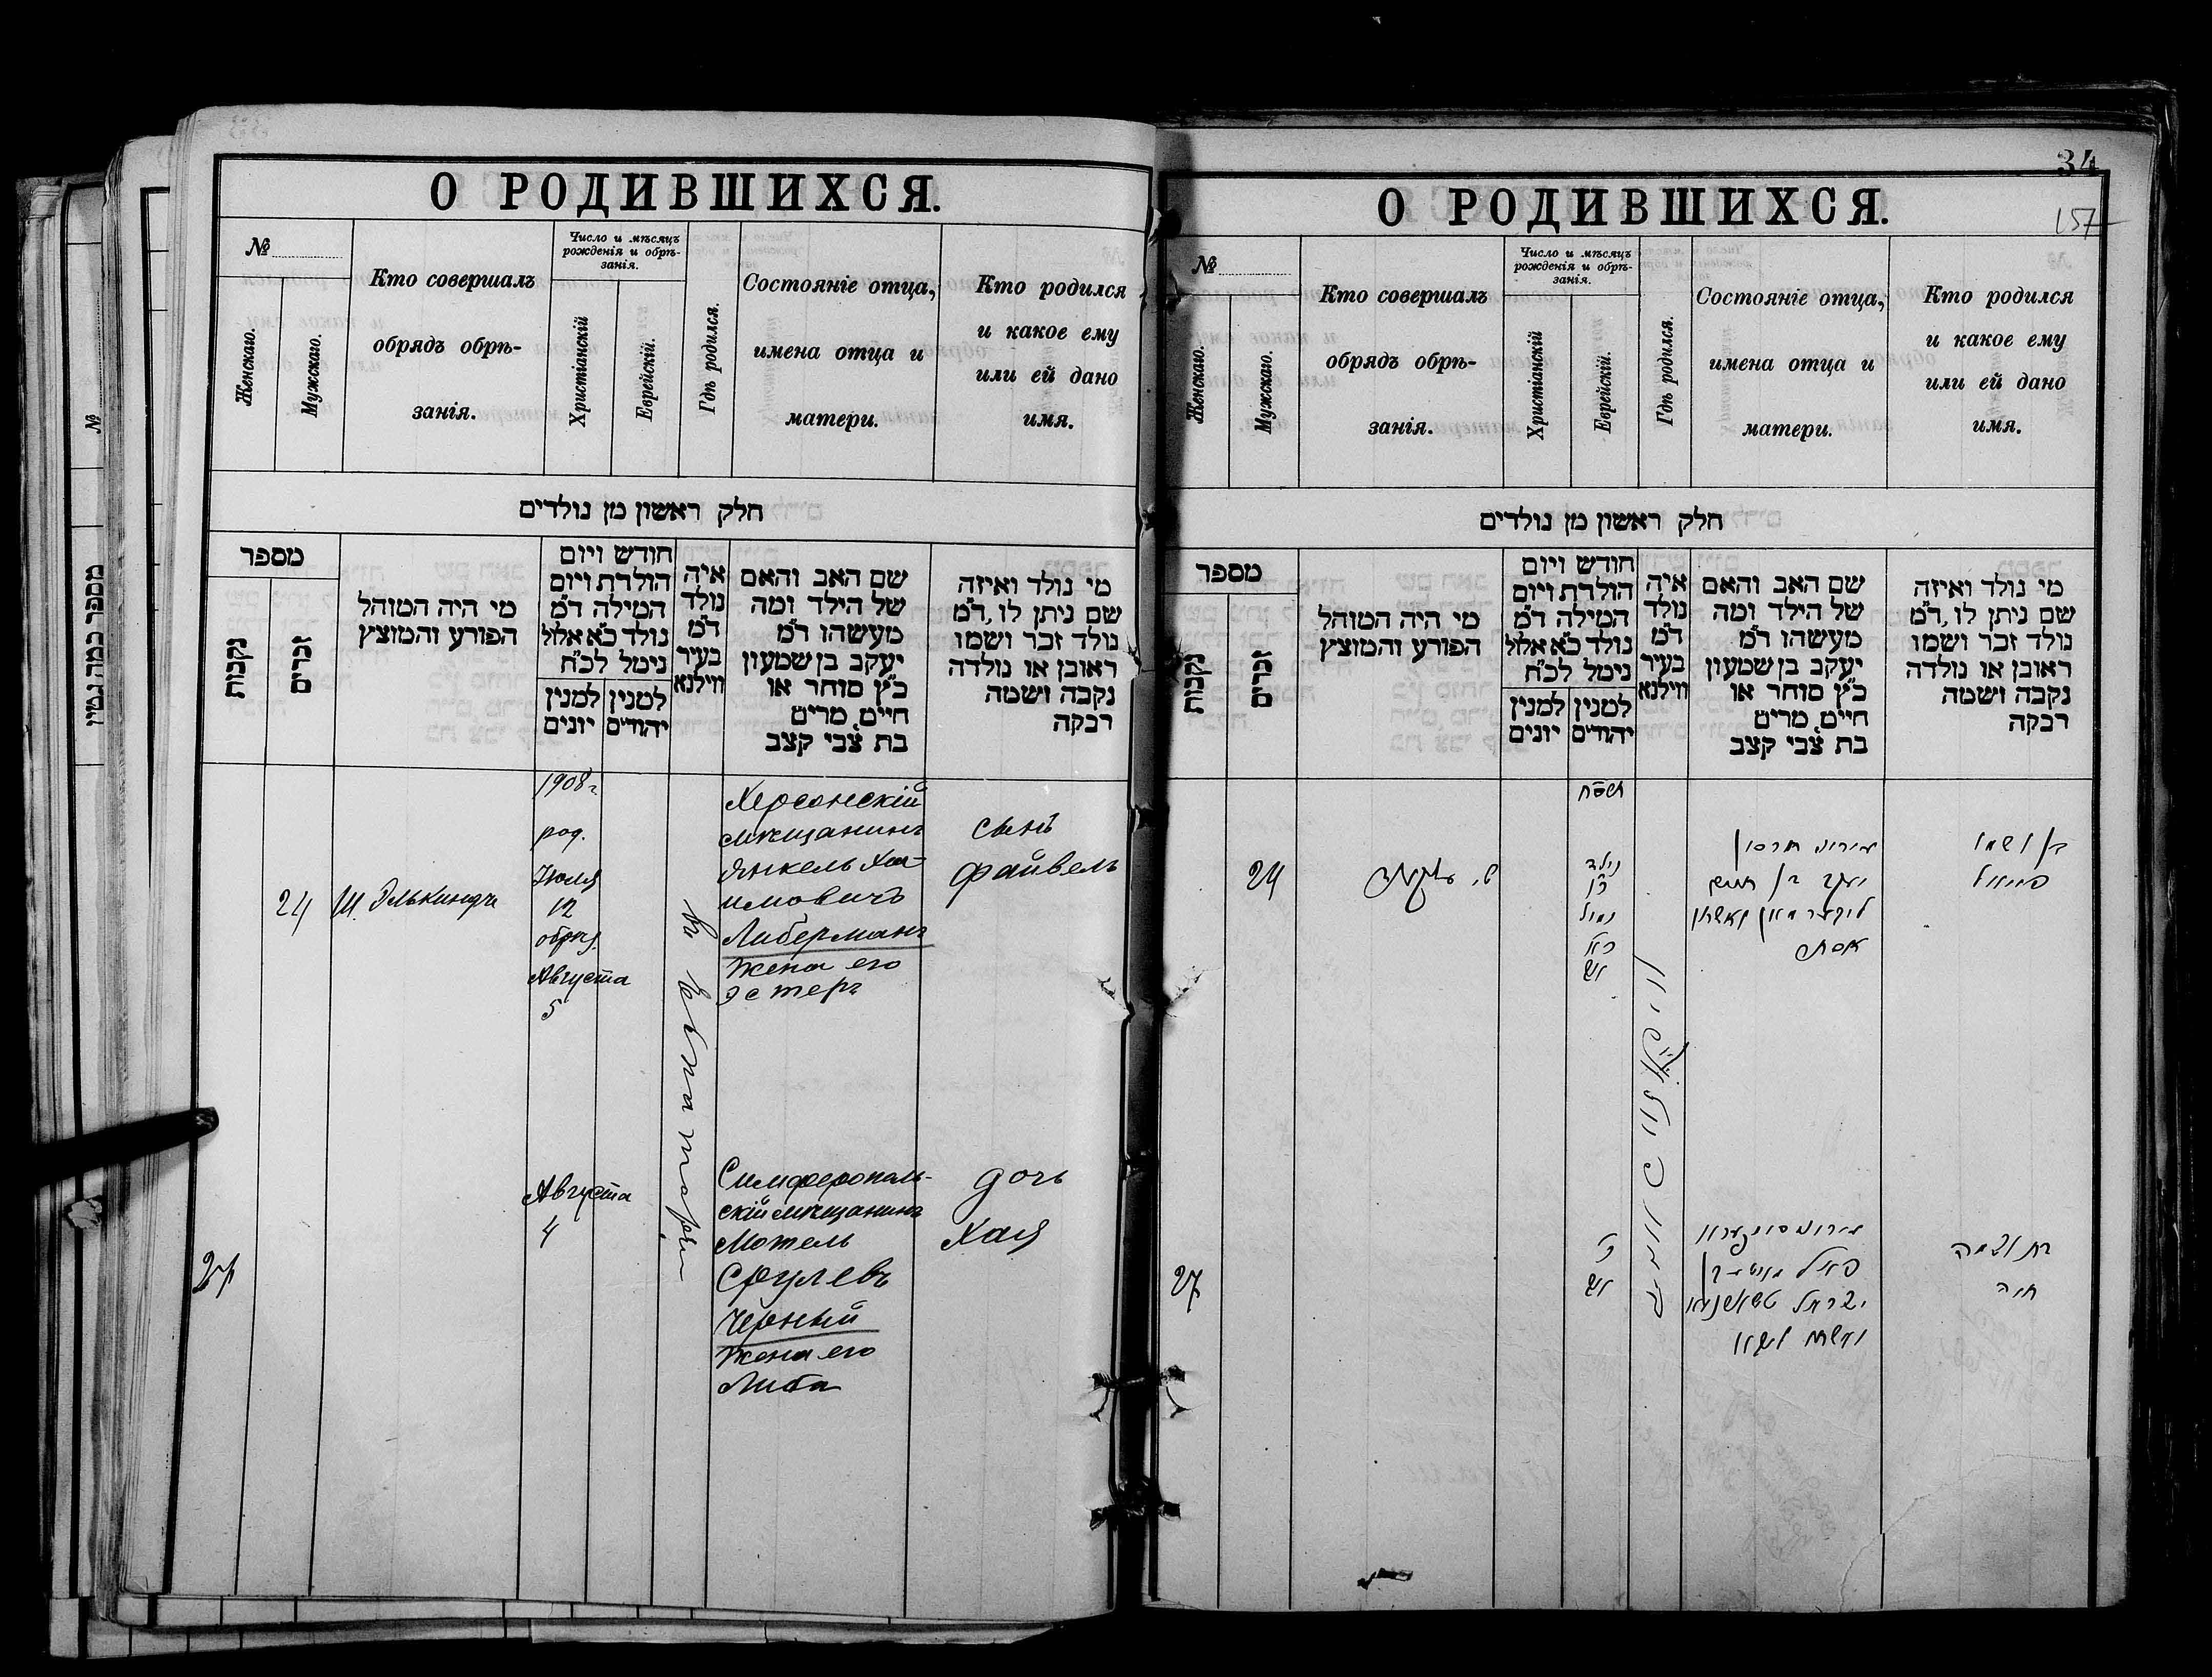 О РОДИВШИХСЯ.
№
Женскаго.
Мужскаго.
Кто совершалъ
обрядъ обрѣ-
занія.
Число и мѣсяцъ
рожденія и обрѣ-
занія.
Христіанскій
Еврейскій.
Гдѣ родился.
Состояніе отца,
имена отца и
матери.
Кто родился
и какое ему
или ей дано
имя.
חלק ראשון מן נולדים
מספר
נקבות
זכרים
מי היה המוהל
הפורע והמוצץ
חודש ויום
הולדת ויום
המילה ד״מ
נולד כ״א אלול
נימל לכ״ח
למנין יונים
למנין יהודים
איה
נולד
ד״מ
בעיר
ווילנא
שם האב והאם
של הילד ומה
מעשהו ד״מ
יעקב בן שמעון
כ״ץ סוחר או
חיים, מרים
בת צבי קצב
מי נולד ואיזה
שם ניתן לו, ד״מ
נולד זכר ושמו
ראובן או נולדה
נקבה ושמה
רבקה
24
Ш. Элькиндъ
1908 г
род.
Іюля
12
обрѣз.
Августа
5
въ Евпаторіи
Херсонскій
мѣщанинъ
Янкель Хаи-
имовичъ
Либерманъ
жена его
Эстеръ
сынъ
Файвель
27
Августа
4
Симферополь-
скій мѣщанинъ
Мотель
Срулевъ
Черный
жена его
Либа
дочь
Хая
34
157
О РОДИВШИХСЯ.
№
Женскаго.
Мужскаго.
Кто совершалъ
обрядъ обрѣ-
занія.
Число и мѣсяцъ
рожденія и обрѣ-
занія.
Христіанскій
Еврейскій.
Гдѣ родился.
Состояніе отца,
имена отца и
матери.
Кто родился
и какое ему
или ей дано
имя.
חלק ראשון מן נולדים
מספר
נקבות
זכרים
מי היה המוהל
הפורע והמוצץ
חודש ויום
הולדת ויום
המילה ד״מ
נולד כ״א אלול
נימל לכ״ח
למנין יונים
למנין יהודים
איה
נולד
ד״מ
בעיר
ווילנא
שם האב והאם
של הילד ומה
מעשהו ד״מ
יעקב בן שמעון
כ״ץ סוחר או
חיים, מרים
בת צבי קצב
מי נולד ואיזה
שם ניתן לו, ד״מ
נולד זכר ושמו
ראובן או נולדה
נקבה ושמה
רבקה
24
תרס״ח
נולד
נמול
יעקב בן
אסתר
בן ושמו
פייוול
27
ישראל
בת ושמה
חיה